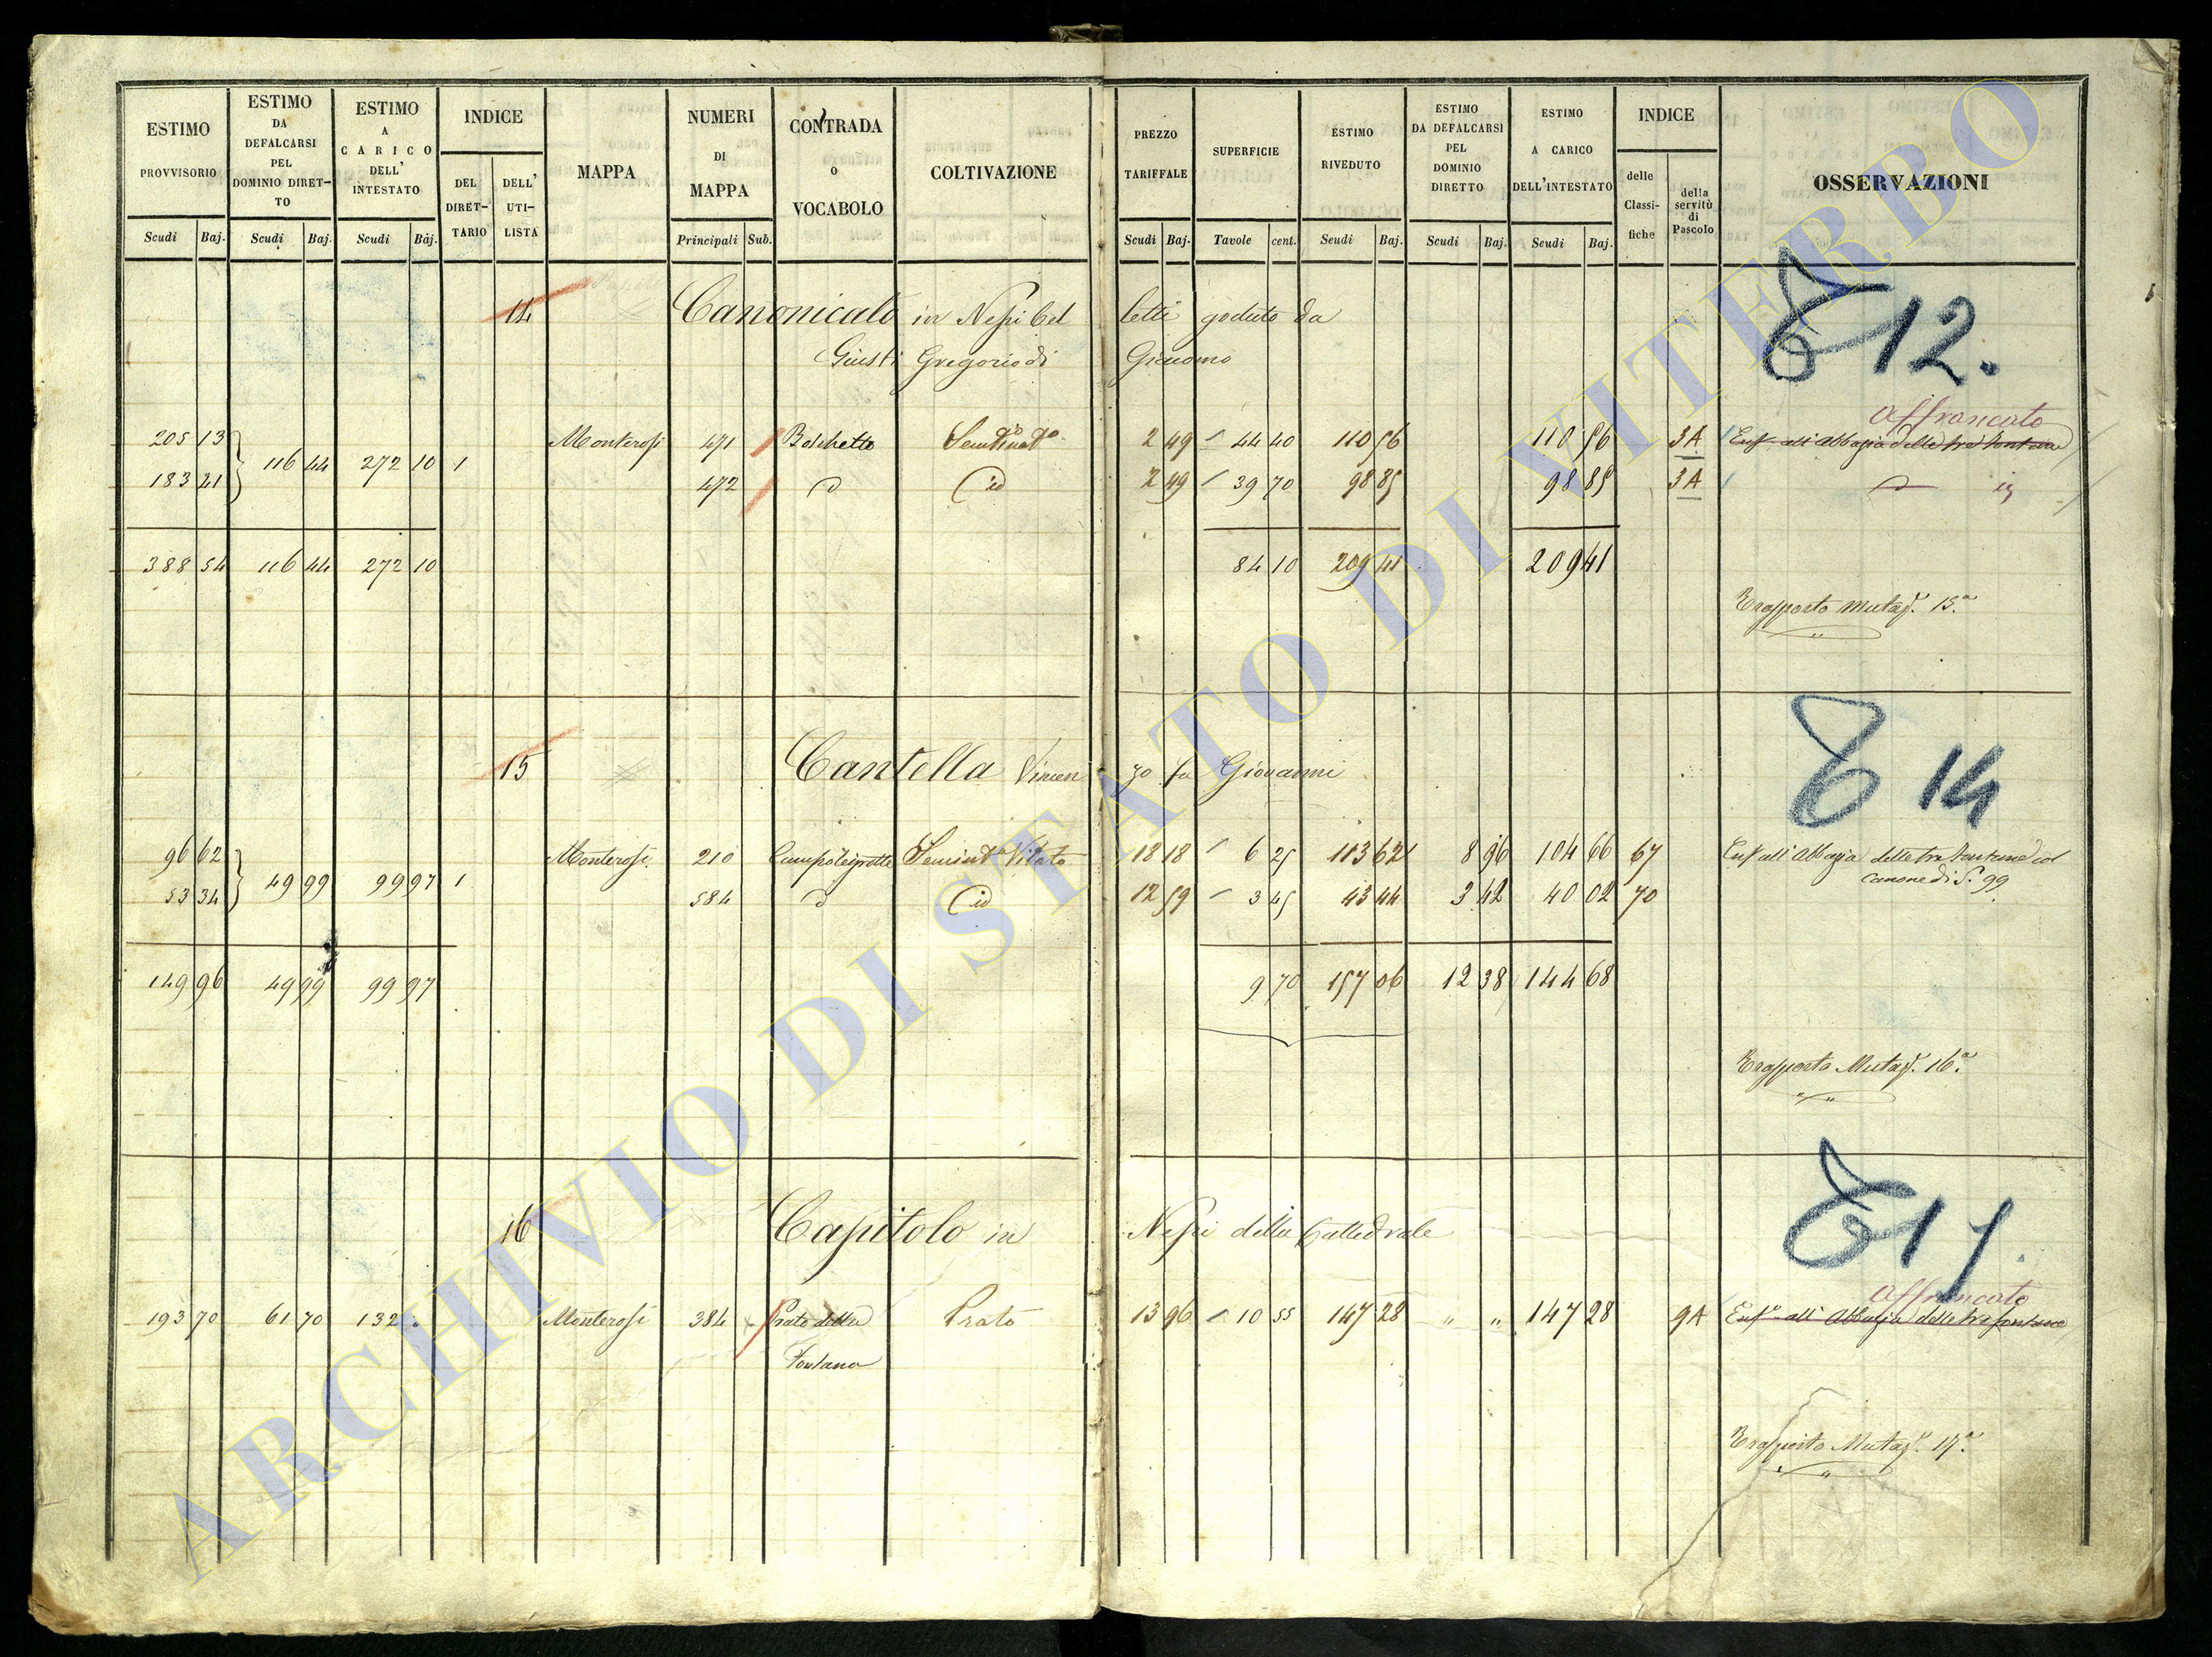 ESTIMO PROVVISORIO Scudi Baj.
ESTIMO DA DEFALCARSI PEL DOMINIO DIRETTO Scudi Baj.
ESTIMO A CARICO DELL' INTESTATO Scudi Baj.
INDICE DEL DIRETTARIO DELL' UTILISTA
MAPPA
NUMERI DI MAPPA Principali Sub.
CONTRADA o VOCABOLO
COLTIVAZIONE
PREZZO TARIFFALE Scudi Baj.
SUPERFICIE Tavole cent.
ESTIMO RIVEDUTO Scudi Baj.
ESTIMO DA DEFALCARSI PEL DOMINIO DIRETTO Scudi Baj.
ESTIMO A CARICO DELL'INTESTATO Scudi Baj.
INDICE delle Classifiche della servitù di Pascolo
OSSERVAZIONI
14 Canonicato in Nepi Bel letti goduto da
Giusti Gregorio di Giacomo
12.
Affrancato
205 13 116 44 272 10 1 Monterosi 471 Boschetto 2 49 44 40 110 56 110 56 3A Enf. all' Abbazia delle tre Fontane
183 41 472 id 2 49 39 70 98 85 98 85 3A
388 54 116 44 272 10 84 10 209 41 209 41
Trasporto Mutaz. 15.a
15 Cantella Vincen zo fu Giovanni
14
96 62 49 99 99 97 1 Monterosi 210 Seminto Vitato 18 18 6 25 113 62 8 96 104 66 67 Enf. all' Abbazia delle tre fontane col
canone di S. 99
53 34 584 id 12 59 3 45 43 44 3 42 40 02 70
149 96 49 99 99 97 9 70 157 06 12 38 144 68
Trasporto Mutaz. 16.a
16 Capitolo in Nepi della Cattedrale
17.
Affrancato
193 70 61 70 132 Monterosi 384 Prato della Prato 13 96 10 55 147 28 " " 147 28 9A Enf. all' Abbazia delle tre fontane
Fontana
Trasporto Mutaz. 17.a
ARCHIVIO DI STATO DI VITERBO